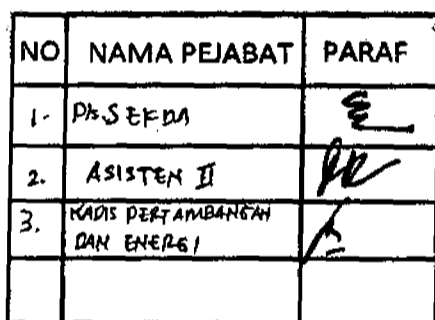 NO NAMA PEJABAT PARAF
1. Pls. SEKDA
2. ASISTEN II
3. KADIS PERTAMBANGAN
DAN ENERGI